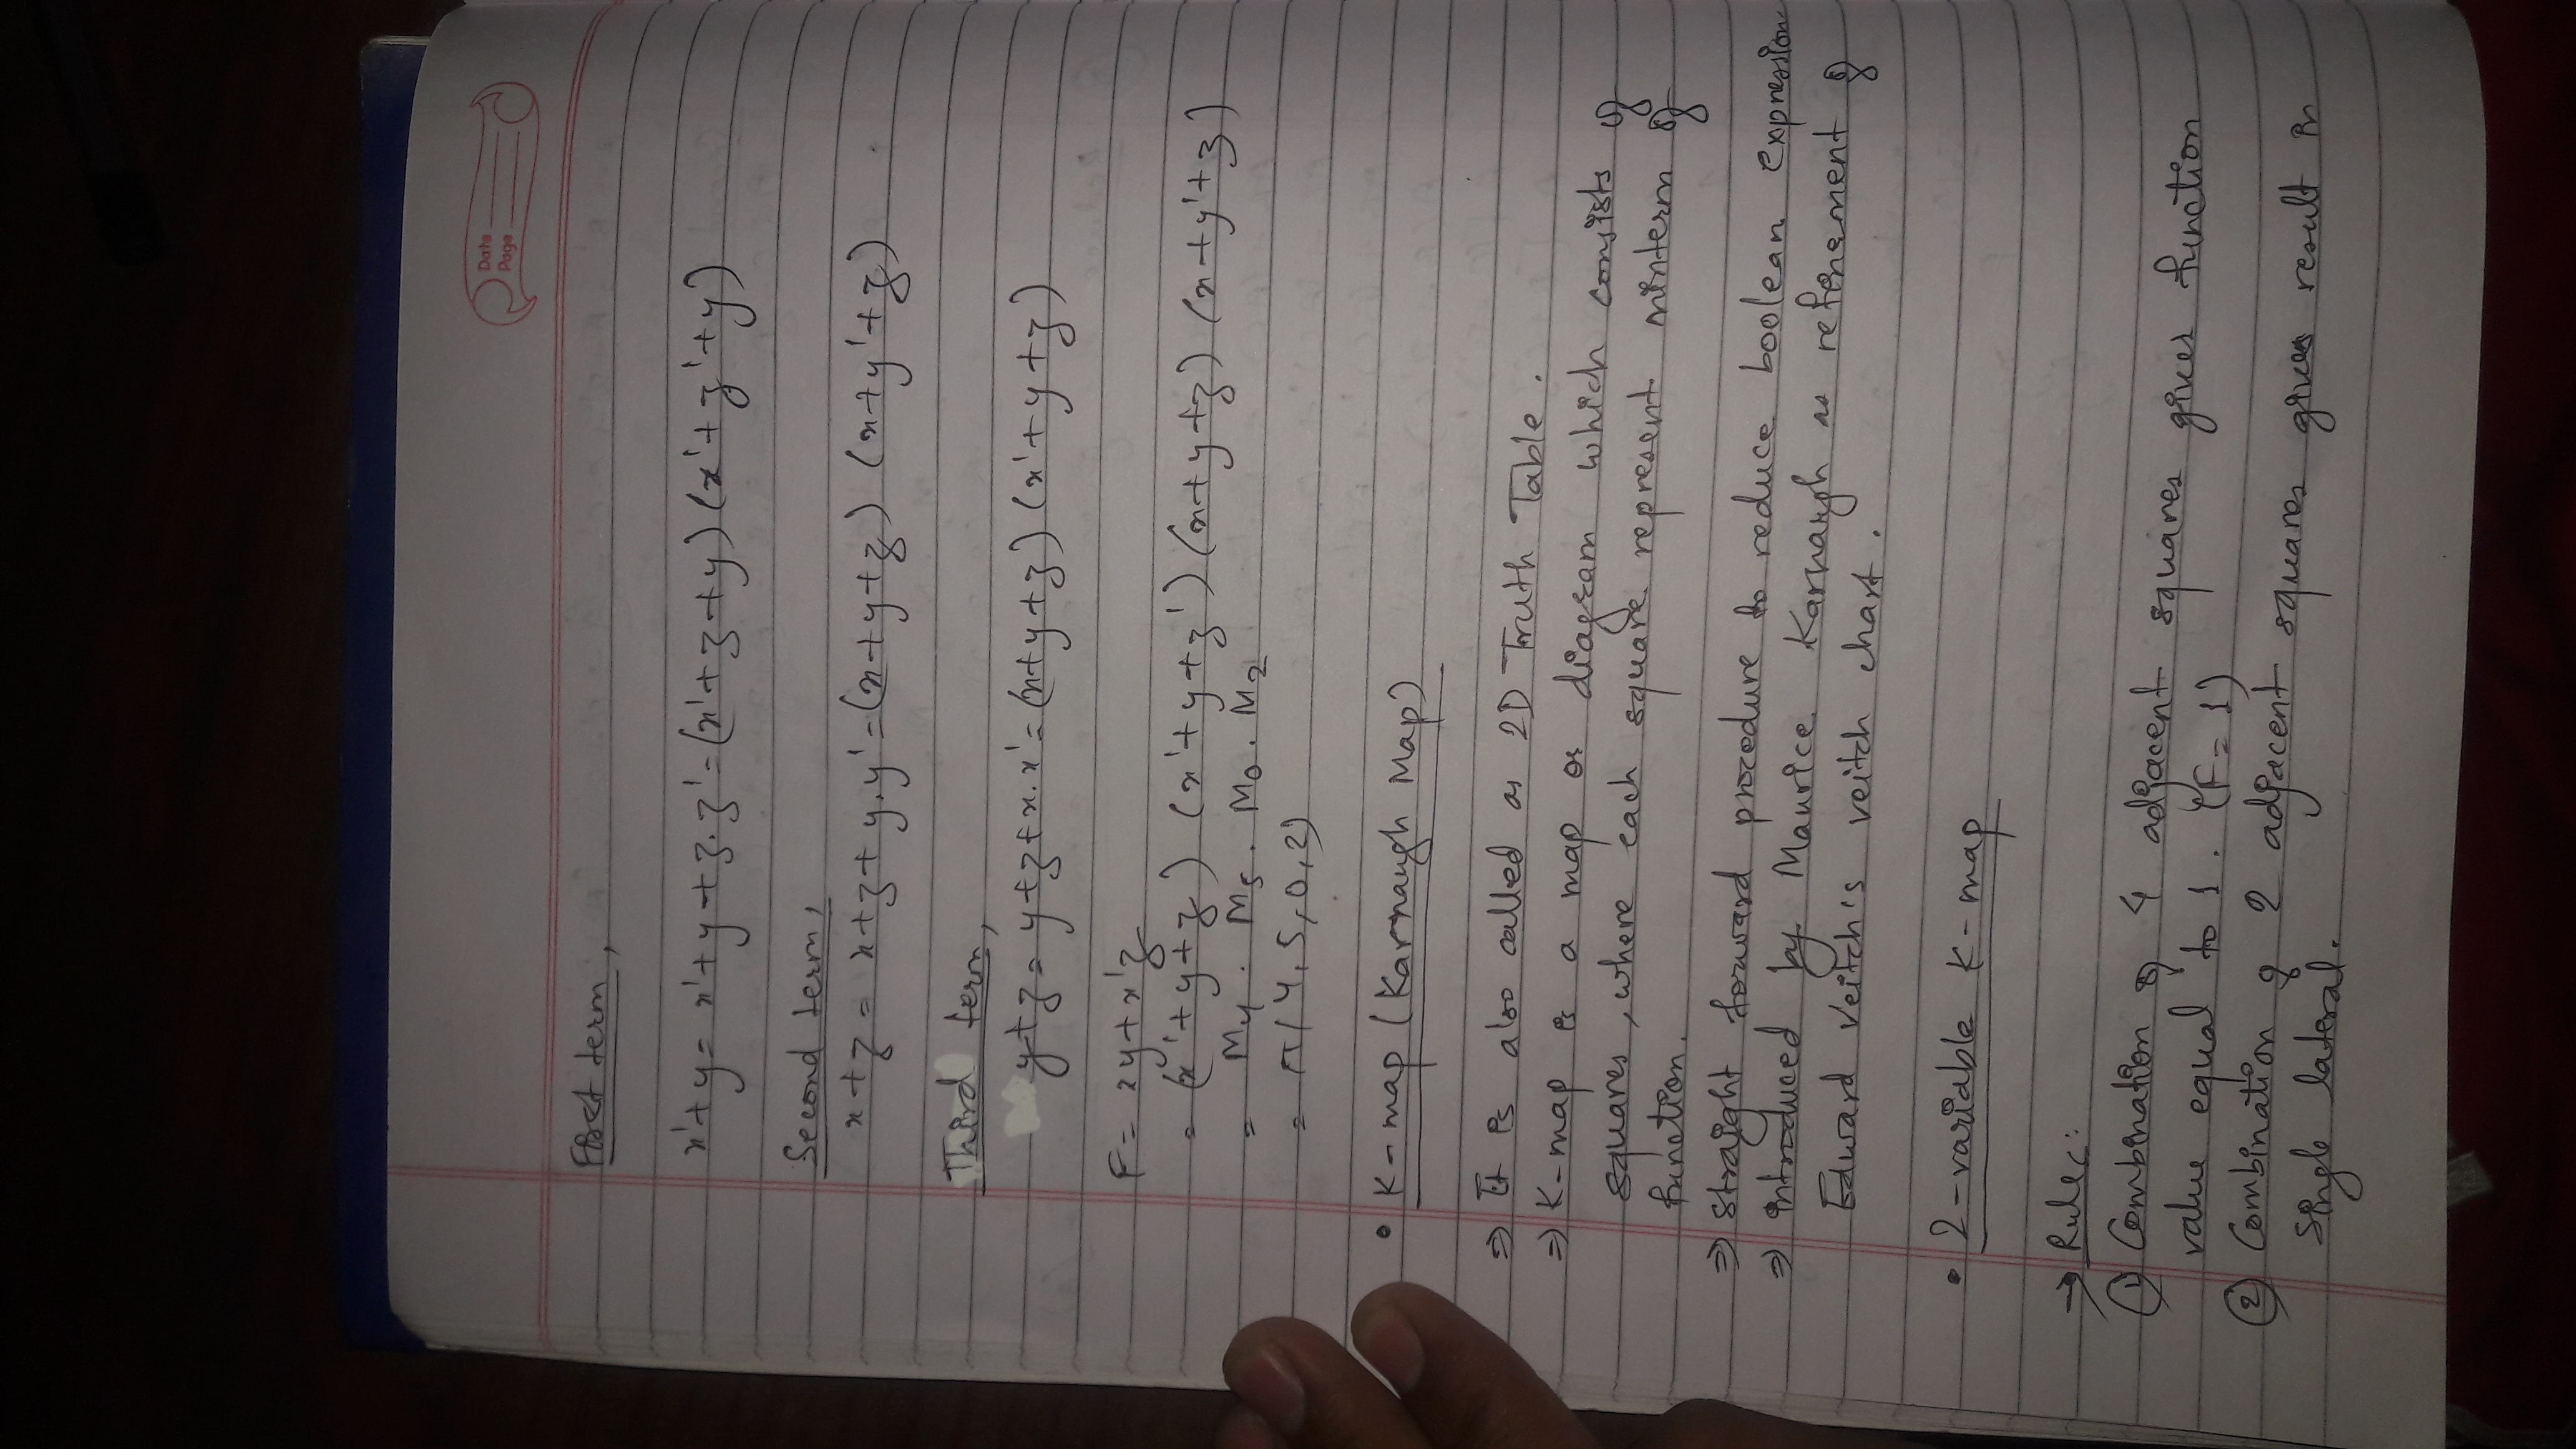 Date
Page
First term,
x'+y = x'+y+z.z' = (x'+z+y) (x'+z'+y)
Second term,
x+z = x+z+y.y' = (x+y+z) (x+y'+z)
Third term,
y+z = y+z+x.x' = (x+y+z) (x'+y+z)
F = xy+x'z
= (x'+y+z) (x'+y+z') (x+y+z) (x+y'+z)
= M4 . M5 . M0 . M2
= π(4,5,0,2)
• K-map (Karnaugh Map)
⇒ It is also called as 2D Truth Table.
⇒ K-map is a map or diagram which consists of
squares, where each square represent minterm of
function.
⇒ straight forward procedure to reduce boolean expression
⇒ introduced by Maurice Karnaugh as refinement of
Edward Veitch's veitch chart.
• 2-variable K-map
→ Rules:
① Combination of 4 adjacent squares gives function
value equal to 1. (F=1)
② Combination of 2 adjacent squares gives result in
single lateral.